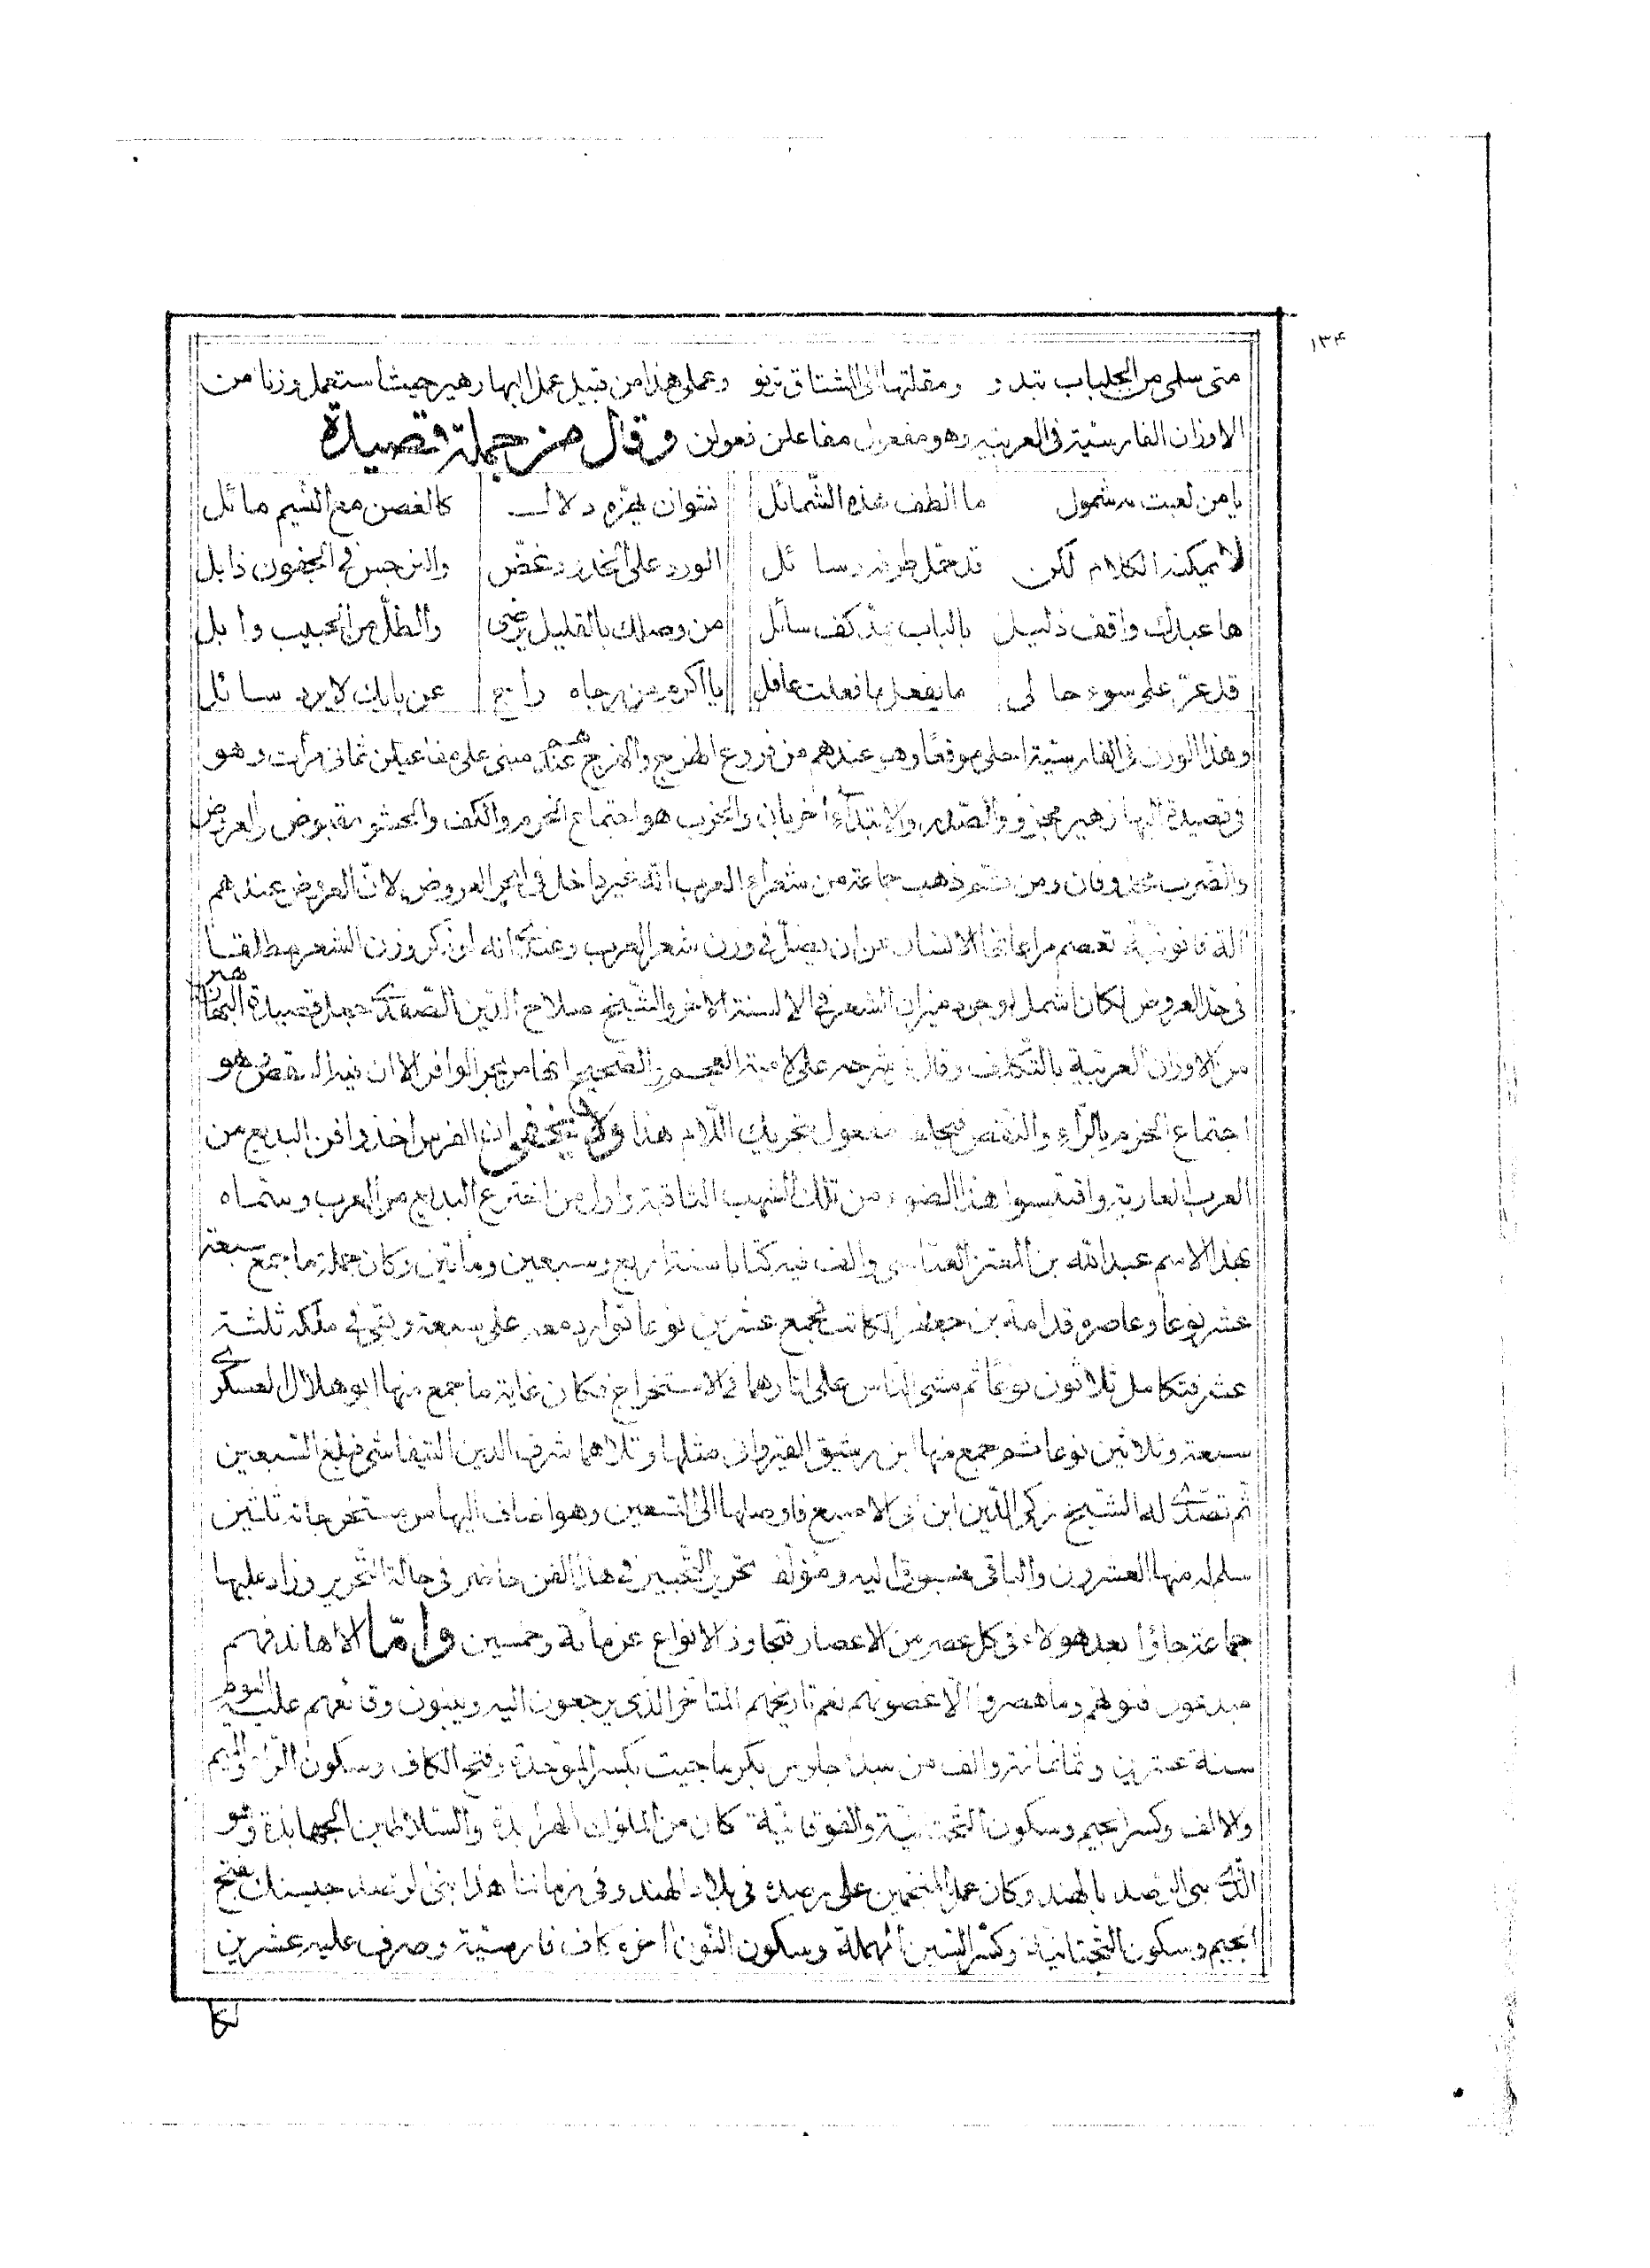 ١٣۴
متى سلمى من الجلباب تبدو ومقلتها الى المشتاق ترنو وعملى هذا من قبيل عمل البها زهير حيث استعمل وزنا من
الاوزان الفارسيّة فى العربيه وهو مفعول مفاعلن فعولن وقال من جملة قصيدة
يا من لعبت به شمول ما الطف هذه الشّمائل نشوان يهزّه دلال كالغصن مع النّسيم مائل
لا يمكنه الكلام لكن قد حمّل طرفه رسائل الورد على الخدود غضّ والنرجس فى الجفون ذابل
ها عبدك واقف ذليل بالباب يمدّ كف سائل من وصلك بالقليل يرضى والطلّ من الحبيب وابل
قد عزّ على سوء حالى ما يفعل ما فعلت عاقل يا اكرم من رجاه راج عن بابك لا يرد سائل
وهذا الوزن فى الفارسيّة احلى موقعًا وهو عندهم من فروع الهزج والهزج عندهم مبنى على مفاعيلن ثمانى مرات وهو
فى قصيدة البها زهير مجزو والصّدر والابتداء اخربان والخرب هو اجتماع الخرم والكف والحشو مقبوض والعروض
والضرب محذوفان ومن ثمّ ذهب جماعة من شعراء العرب انّه غير داخل فى ابحر العروض لانّ العروض عندهم
آلة قانونيّة تعصم مراعاتها الانسان عن ان يضلّ فى وزن شعر العرب وعندى انه لو ذكر وزن الشعر مطلقا
فى حدّ العروض لكان اشمل لوجود ميزان الشعر فى الالسنة الاخر والشّيخ صلاح الدّين الصّفدى جعل قصيدة البهاء زهير
من الاوزان العربيّة بالتّكلف وقال فى شرحه على لامية العجم والصّحيح انّها من بحر الوافر الا ان فيه النقص وهو
اجتماع الخرم بالرّاء والنّقص فيجىء مفعول بتحريك اللّام هذا ولا يخفى ان الفرس اخذوا فن البديع من
العرب العاربة واقتبسوا هذا الضوء من تلك الشهب الثاقبة واول من اخترع البديع من العرب وسمّاه
بهذا الاسم عبد الله بن المعتز العبّاسى والف فيه كتابا سنة اربع وسبعين ومأتين وكان جملة ما جمع سبعة
عشر نوعا وعاصره قدامة بن جعفر الكاتب فجمع عشرين نوعا توارد معه على سبعة وبقى فى ملكه ثلثة
عشر فتكامل ثلاثون نوعًا ثم مشى الناس على آثارهما فى الاستخراج فكان غاية ما جمع منها ابو هلال العسكرى
سبعة وثلاثين نوعا ثم جمع منها ابن رشيق القيروانى مثلها وتلاهما شرف الدين التيفاشى فبلغ السّبعين
ثم تصدّى له الشّيخ زكى الدّين ابن ابى الاصبع فاوصلها الى التسعين وهو اضاف اليها من مستخرجاته ثلثين
سلم له منها العشرون والباقى مسبوق اليه ومؤلّفه تحرير التّحبير فى هذا الفن حاضر فى حالة التّحرير وزاد عليها
جماعة جاؤا بعد هولاء فى كل عصر من الاعصار فتجاوز الانواع عن مائة وخمسين وامّا الاهاند فهم
مبدعون فنونهم وما هصروا الا غصونهم نعم تاريخهم المتاخر الذى يرجعون اليه ويبنون وقائعهم عليه اليوم
سنة عشرين وثمانمائة والف من مبدأ جلوس بكرماجيت بكسر الموّحدة وفتح الكاف وسكون الرّاء والميم
والالف وكسر الجيم وسكون التّحتيّة والفوقانيّة كان من الملوك الهرابذة والسّلاطين الجهابذة وهو
الّذى بنى الرّصد بالهند وكان عمل المنجّمين على رصده فى بلاد الهند وفى زماننا هذا بنى الرّصد جيسنك بفتح
الجيم وسكون التّحتانيّة وكسر السّين المهملة وسكون النّون آخره كاف فارسيّة وصرف عليه عشرين
لكا